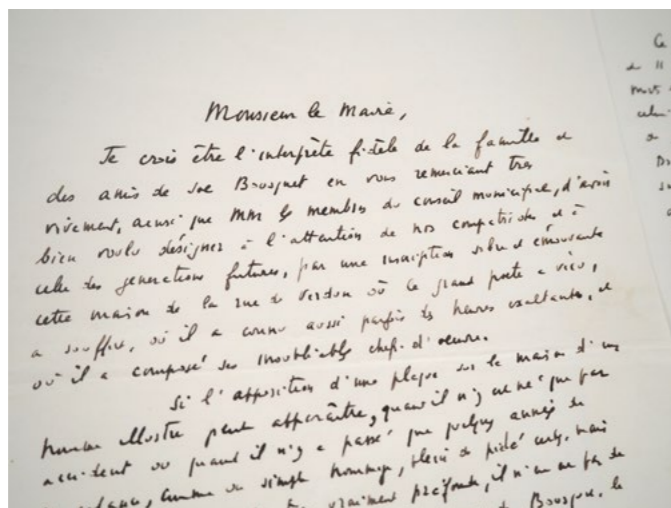 Monsieur le Maire,
Je crois être l'interprète fidèle de la famille et
des amis de Joe Bousquet en vous remerciant très
vivement, ainsi que MM les membres du conseil municipal, d'avoir
bien voulu désigner à l'attention de nos compatriotes et à
celle des générations futures, par une inscription sobre et émouvante
cette maison de la rue de Verdun où ce grand poète a vécu,
a souffert, où il a connu aussi parfois des heures exaltantes, et
où il a composé ses inoubliables chefs d'oeuvre.
Si l'apposition d'une plaque sur la maison d'un
homme illustre peut apparaître, quand il n'y est né que par
accident ou quand il n'y a passé que quelques années de
comme un simple hommage, plein de piété certes, mais
vraiment profonde, il n'en est pas de
Bousquet, le
Ce
de 11
mots
celui
a
D
su